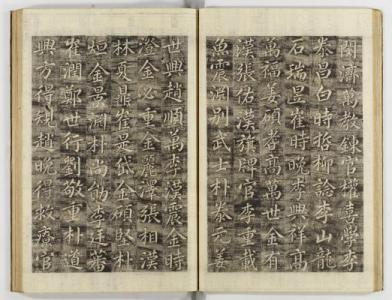 閔濟萬教鍊官權善學李
泰昌白時哲柳諗李山龍
石瑞昱崔時晩李興祥高
萬福姜碩孝高萬世金有
漢張佑漢旗牌官李重載
魚震淵別武士朴泰元姜
世興趙順萬李漢震金時
澄金必重金麗澤張相漢
林夏鼎崔是岱金碩堅朴
烜金景潤朴尚勉李廷蕃
崔潤鄭世行劉敬重朴道
興方得規趙晩得救療官